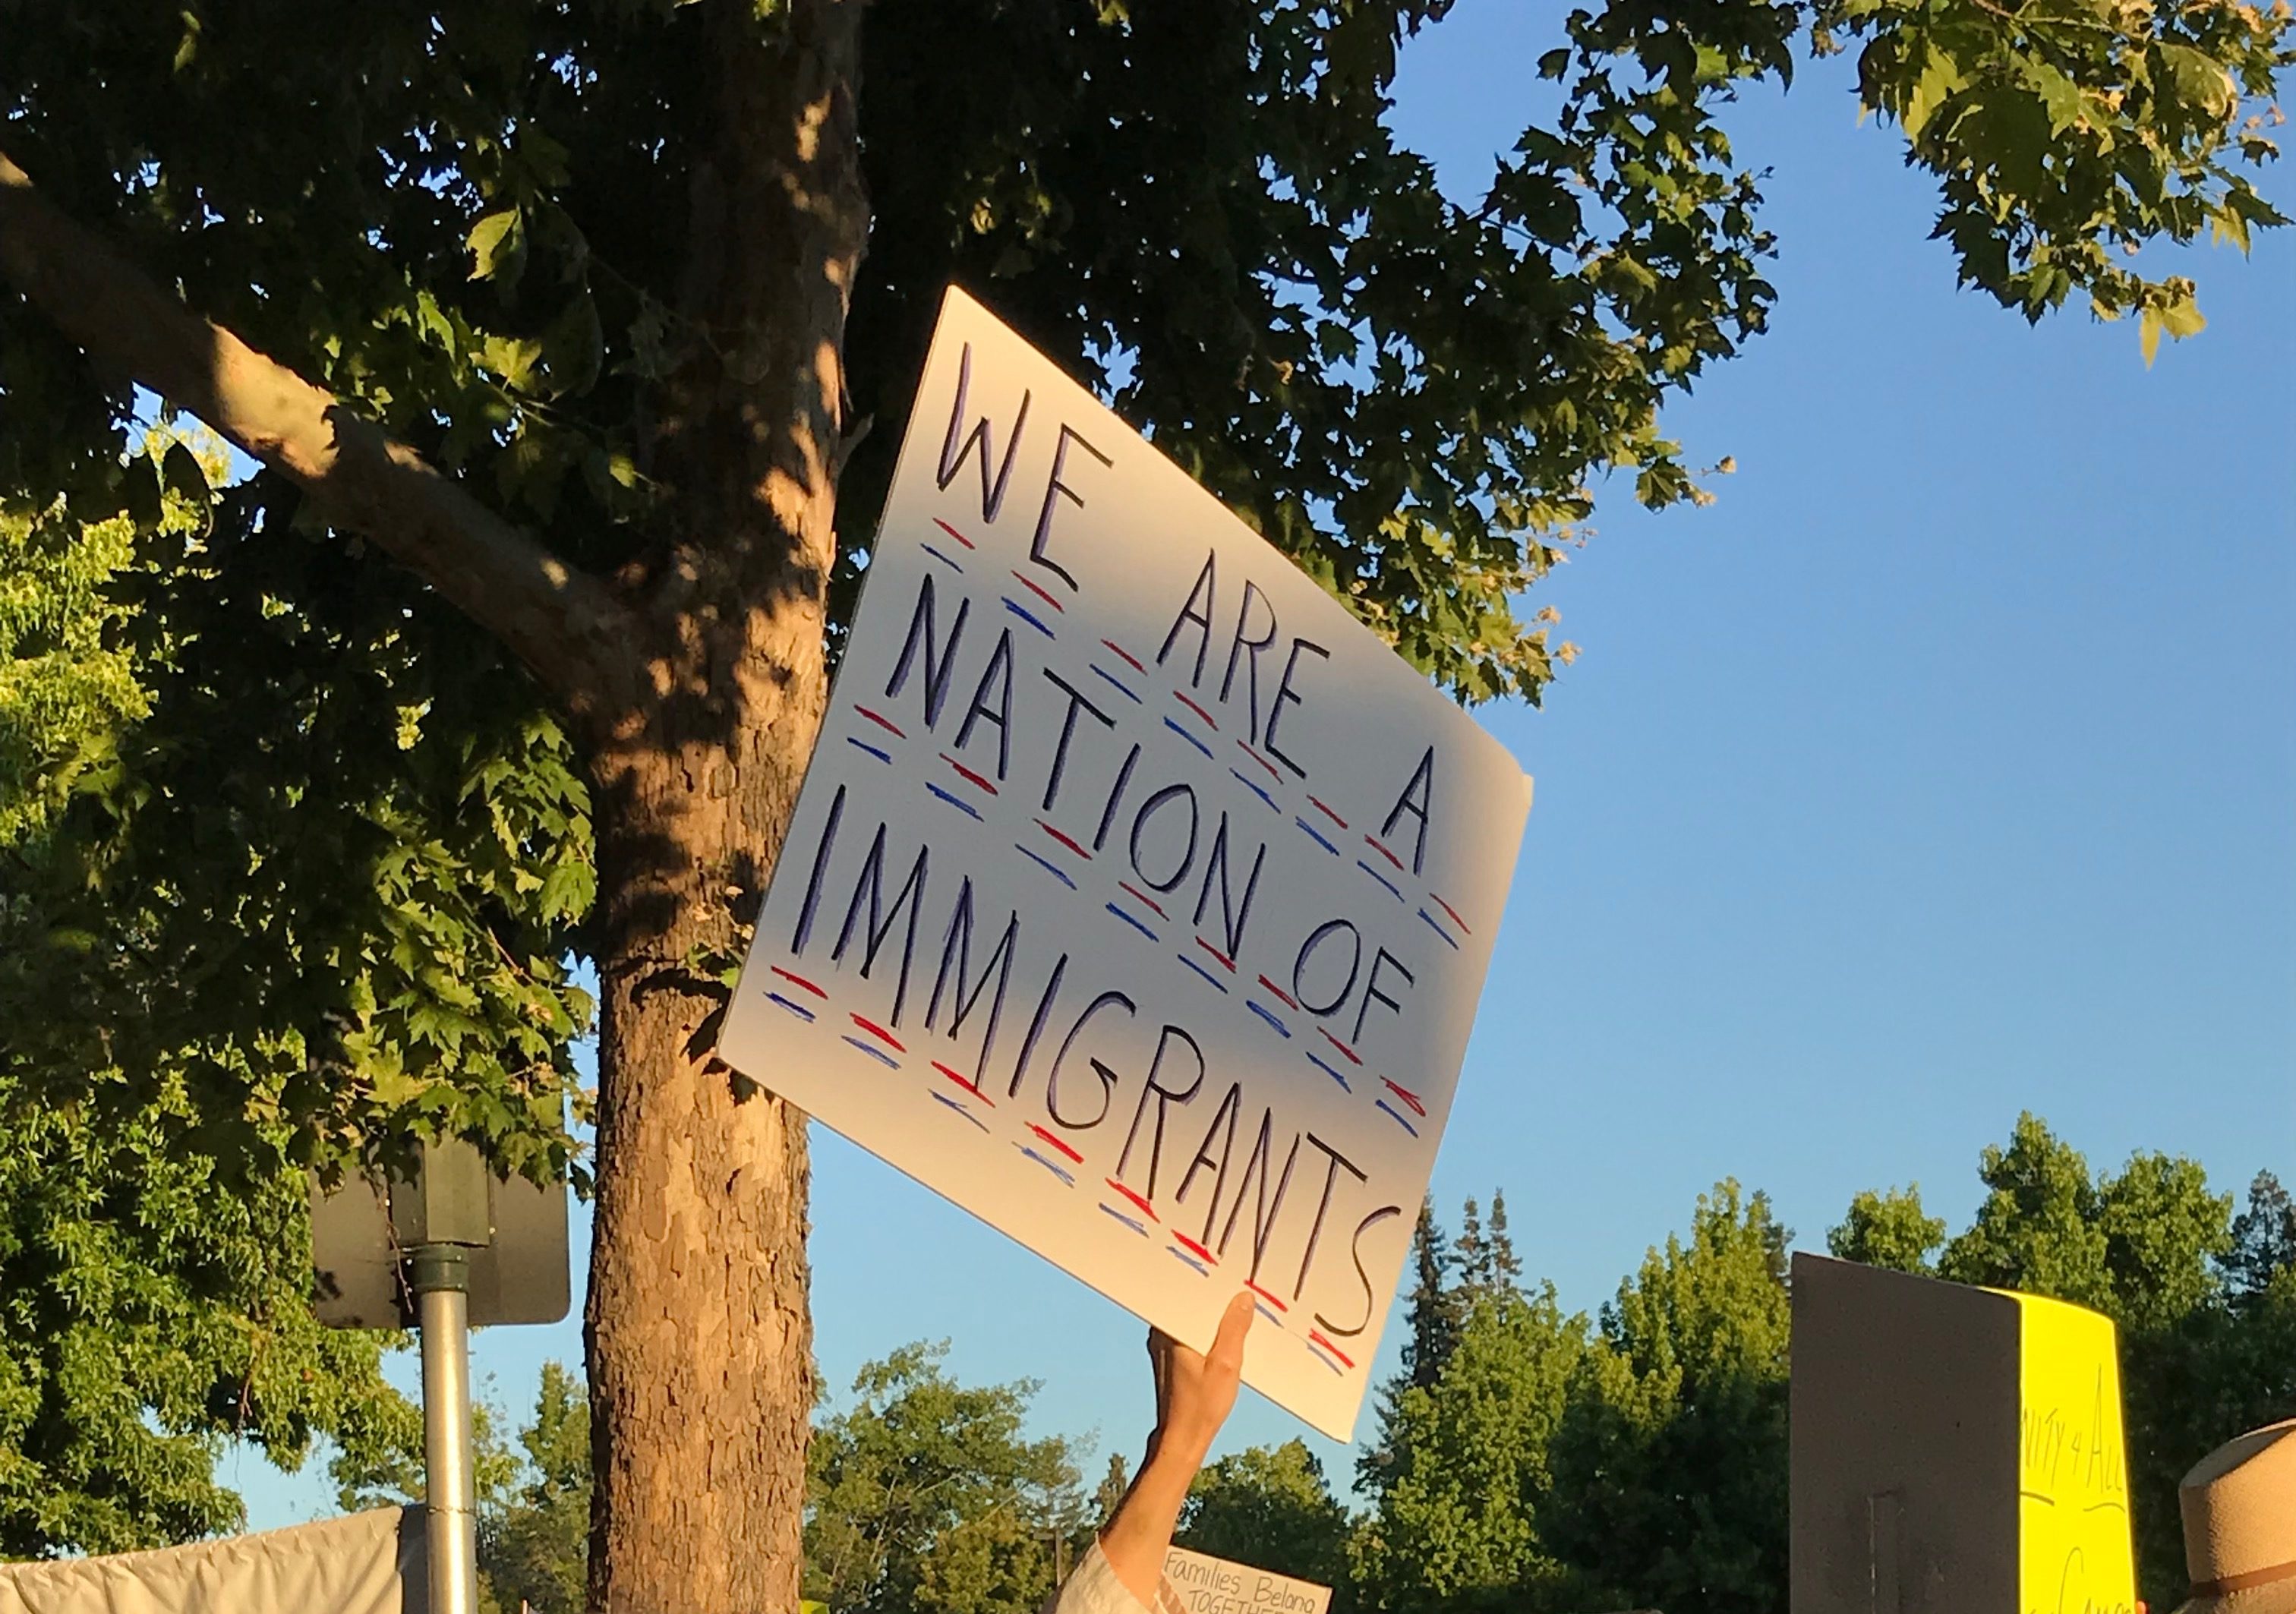 WE ARE A
NATION OF
IMMIGRANTS
Families Belong
TOGETHER
4 ALL